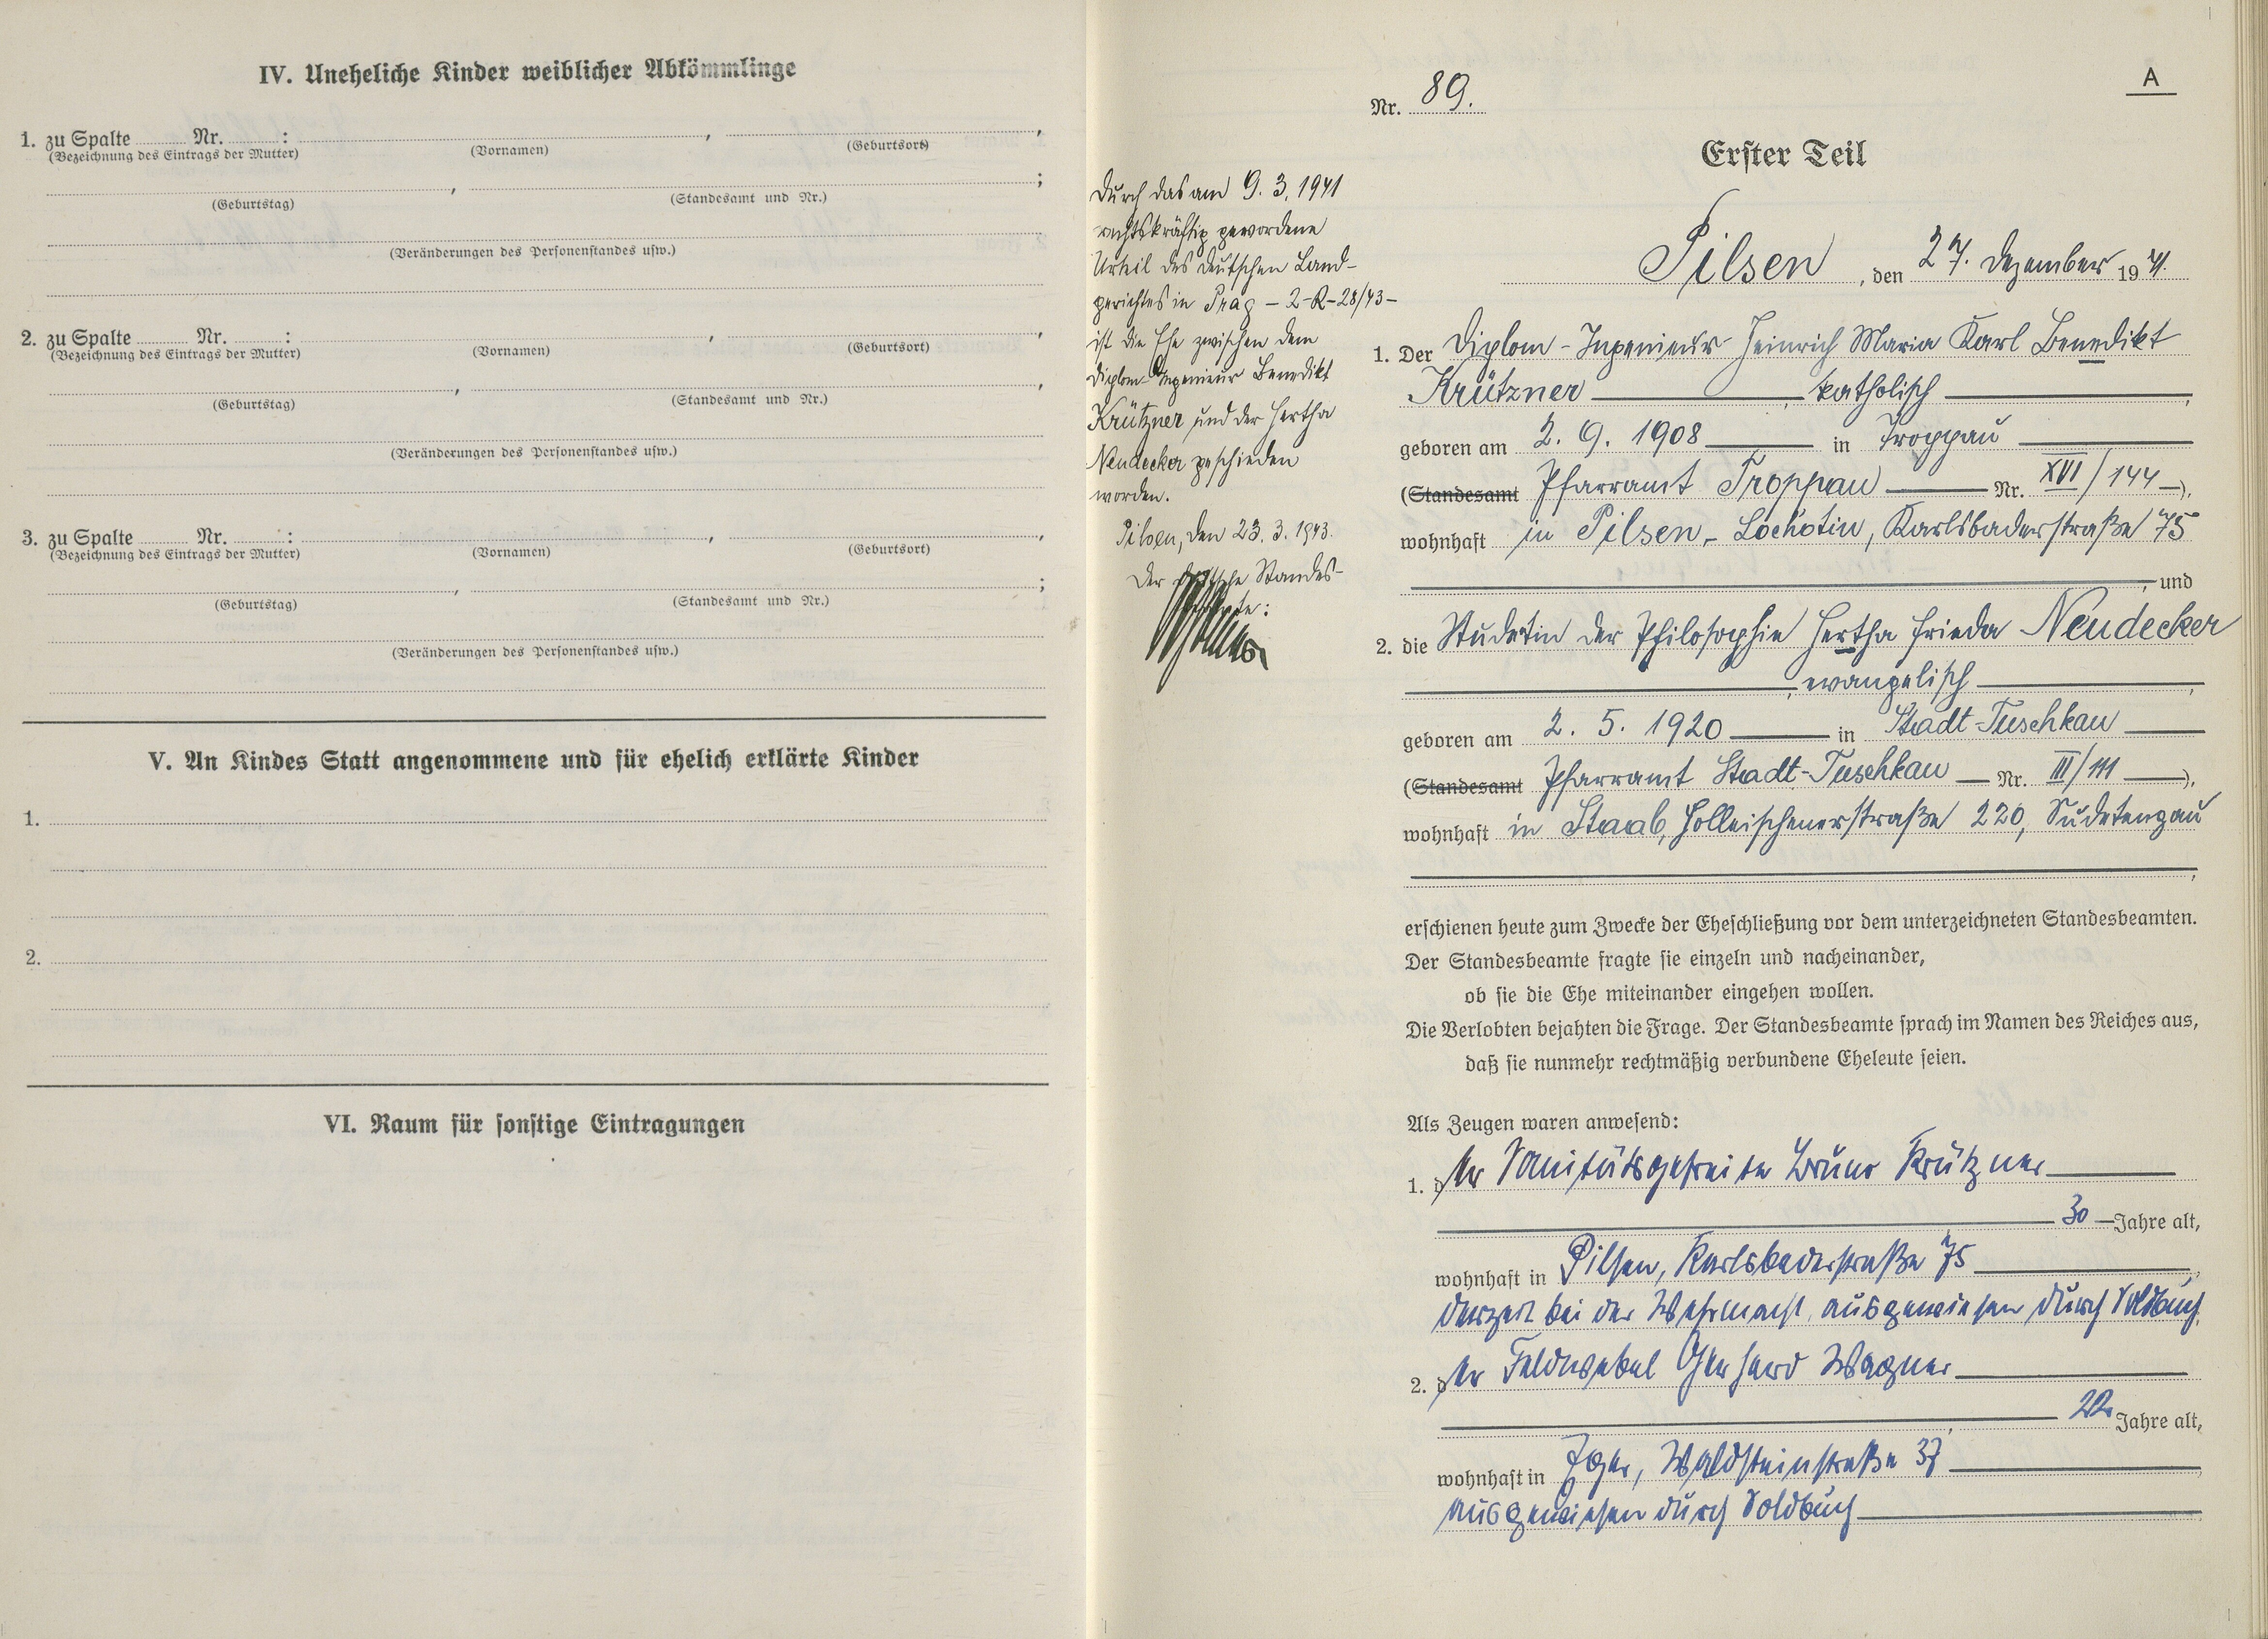 IV. Uneheliche Kinder weiblicher Abkömmlinge
1. zu Spalte ........ Nr. ........ : , ,
(Bezeichnung des Eintrags der Mutter) (Vornamen) (Geburtsort)
, ;
(Geburtstag) (Standesamt und Nr.)
(Veränderungen des Personenstandes usw.)
2. zu Spalte ........ Nr. ........ : , ,
(Bezeichnung des Eintrags der Mutter) (Vornamen) (Geburtsort)
, ;
(Geburtstag) (Standesamt und Nr.)
(Veränderungen des Personenstandes usw.)
3. zu Spalte ........ Nr. ........ : , ,
(Bezeichnung des Eintrags der Mutter) (Vornamen) (Geburtsort)
, ;
(Geburtstag) (Standesamt und Nr.)
(Veränderungen des Personenstandes usw.)
V. An Kindes Statt angenommene und für ehelich erklärte Kinder
1.
2.
VI. Raum für sonstige Eintragungen
A
Nr. 89.
Erster Teil
Durch das am 9. 3. 1941
rechtskräftig gewordene
Urteil des Deutschen Land-
gerichtes in Prag – 2-R-28/43 –
ist die Ehe zwischen dem
Diplom-Ingenieur Benedikt
Krützner und der Hertha
Neudecker geschieden
worden.
Pilsen, den 23. 3. 1943.
Der Deutsche Standes-
beamte:
Pilsen, den 27. Dezember 1941.
1. Der Diplom-Ingenieur Heinrich Maria Karl Benedikt
Krützner , katholisch ,
geboren am 2. 9. 1908 in Troppau
(Standesamt Pfarramt Troppau Nr. XVI/144 ),
wohnhaft in Pilsen-Lochotin, Karlsbaderstraße 75
, und
2. die Studentin der Philosophie Hertha Frieda Neudecker
, evangelisch ,
geboren am 2. 5. 1920 in Stadt-Tuschkau
(Standesamt Pfarramt Stadt-Tuschkau Nr. III/111 ),
wohnhaft in Staab, Holleischenerstraße 220, Sudetengau
,
erschienen heute zum Zwecke der Eheschließung vor dem unterzeichneten Standesbeamten.
Der Standesbeamte fragte sie einzeln und nacheinander,
ob sie die Ehe miteinander eingehen wollen.
Die Verlobten bejahten die Frage. Der Standesbeamte sprach im Namen des Reiches aus,
daß sie nunmehr rechtmäßig verbundene Eheleute seien.
Als Zeugen waren anwesend:
1. der Sanitätsgefreite Bruno Krützner
30 Jahre alt,
wohnhaft in Pilsen, Karlsbaderstraße 75 ,
derzeit bei der Wehrmacht, ausgewiesen durch Soldbuch,
2. der Feldwebel Gerhard Wagner
22 Jahre alt,
wohnhaft in Eger, Waldsteinstraße 37 ,
ausgewiesen durch Soldbuch